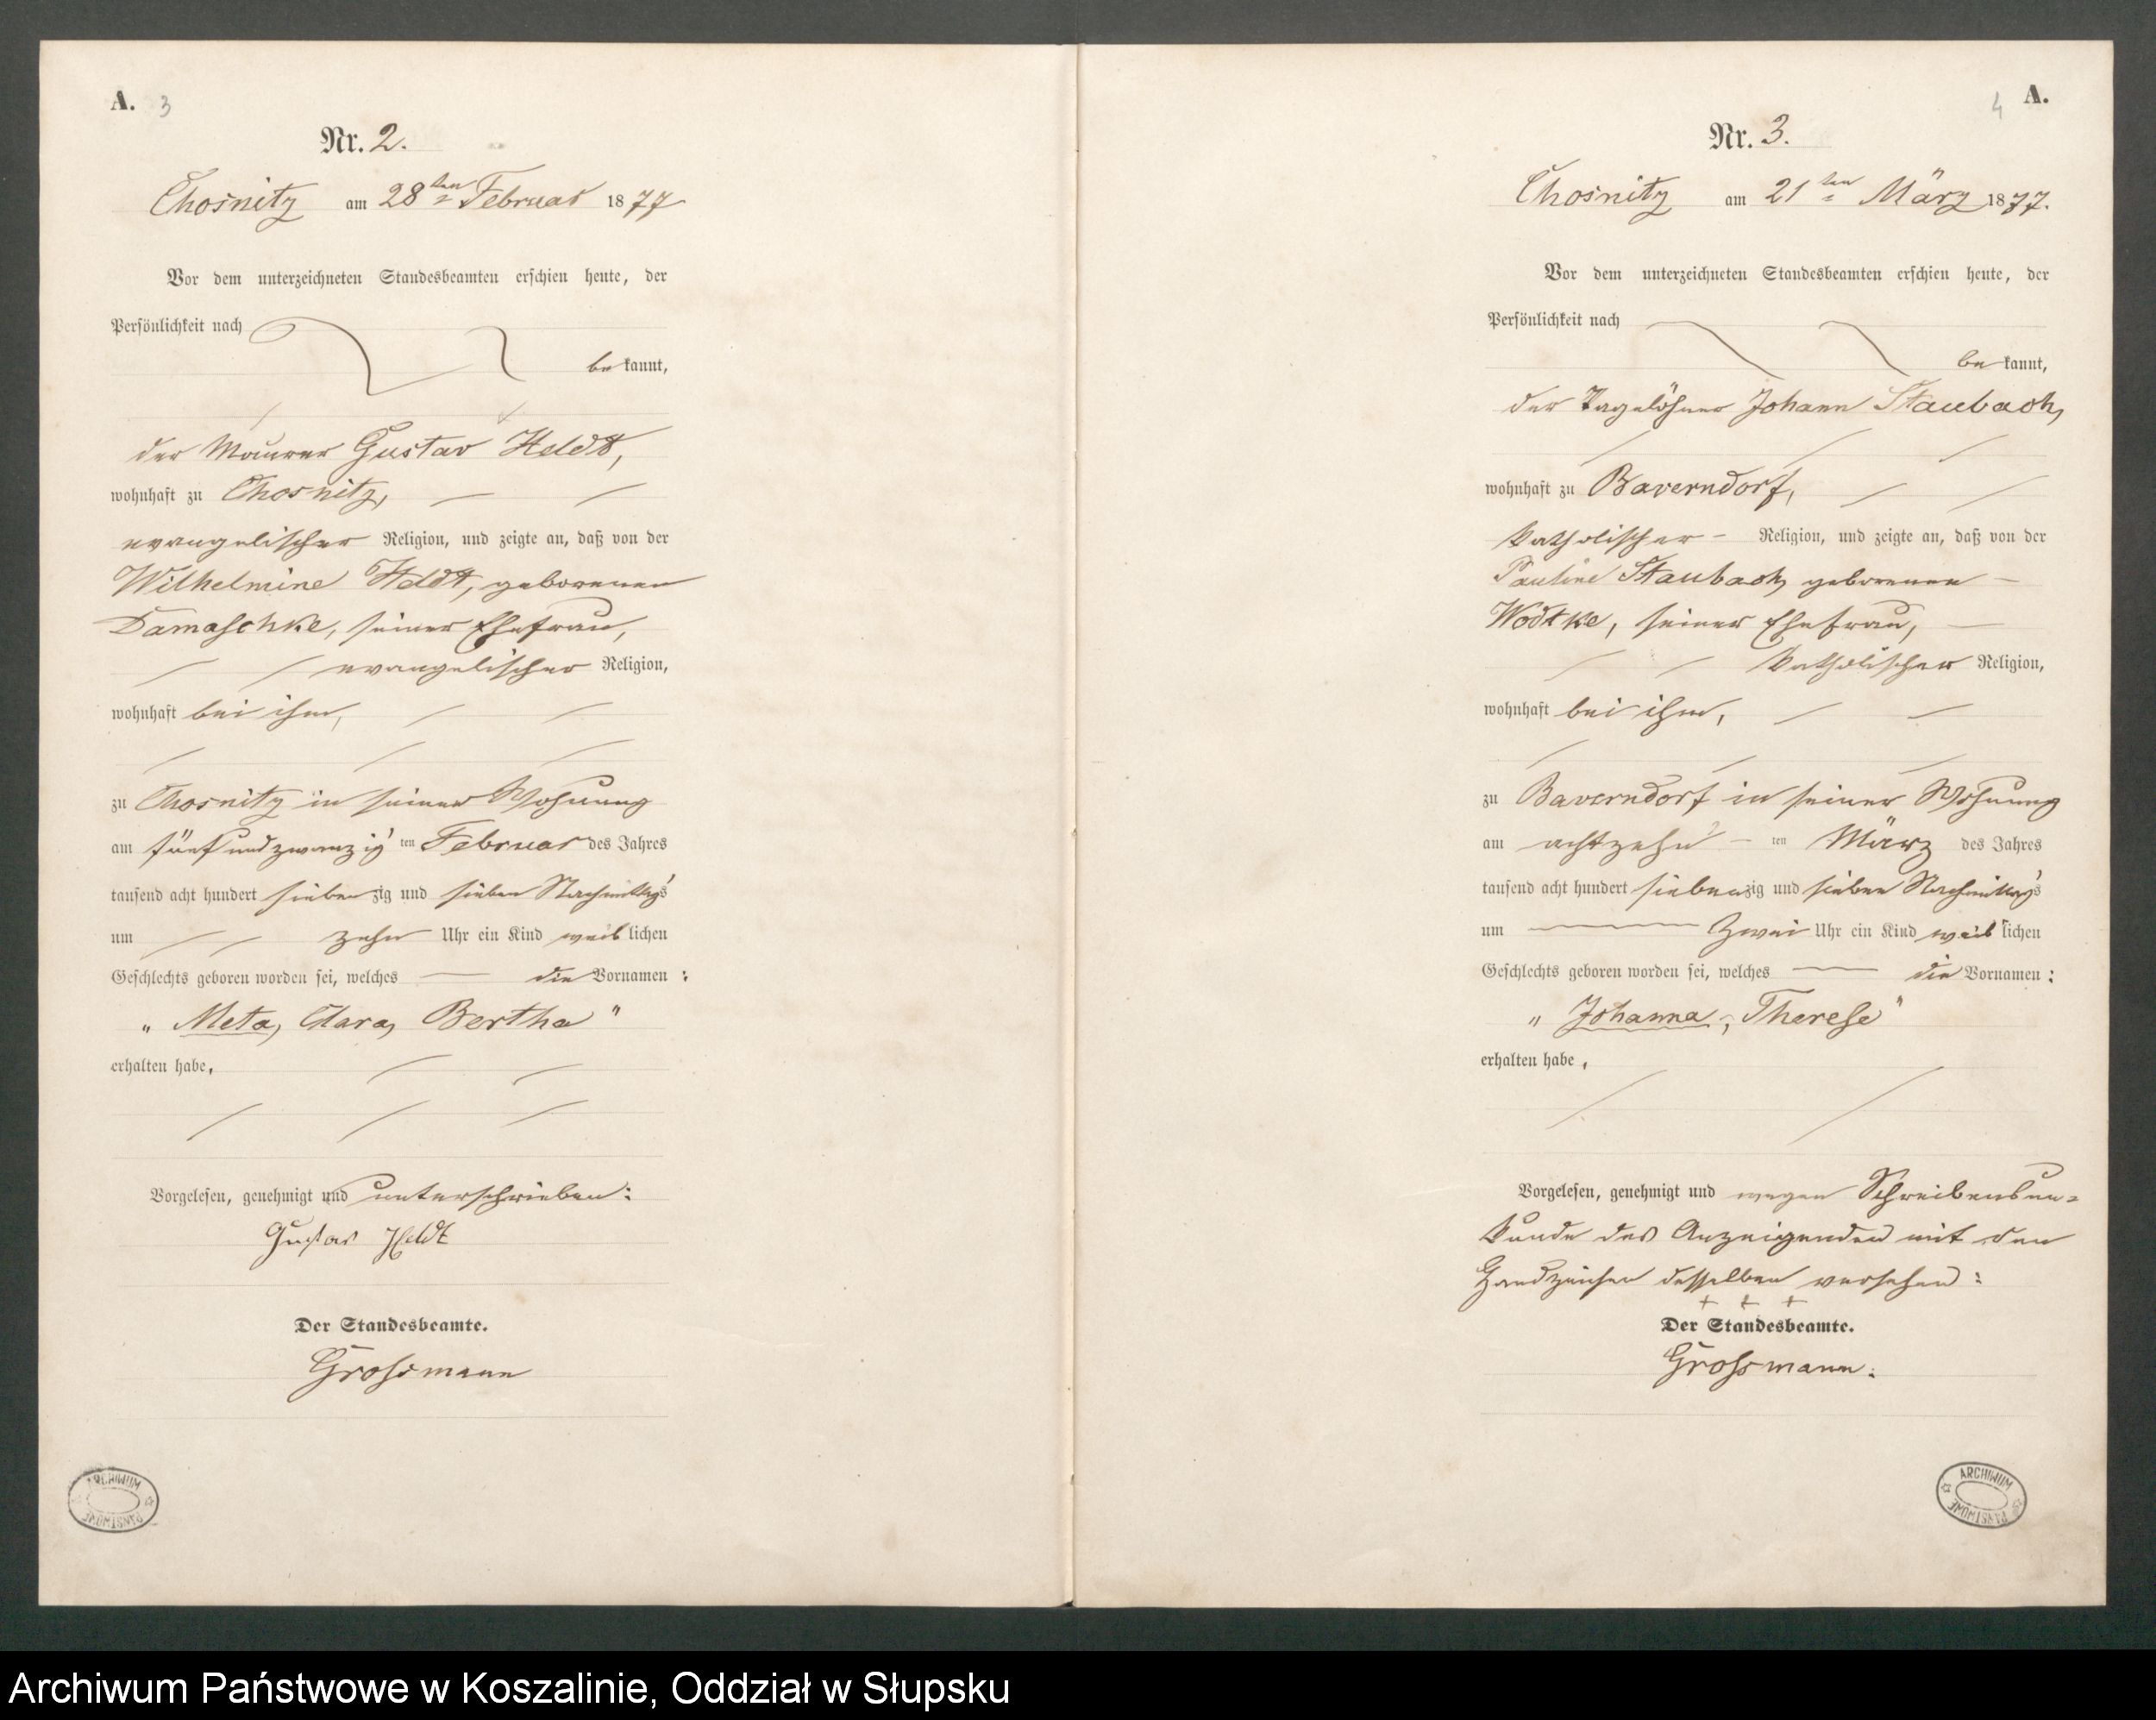 A. 3
Nr. 2.
Chosnitz am 28ten Februar 1877
Vor dem unterzeichneten Standesbeamten erschien heute, der
Persönlichkeit nach
bekannt,
der Maurer Gustav Heldt,
wohnhaft zu Chosnitz,
evangelischer Religion, und zeigte an, daß von der
Wilhelmine Heldt, geborenen
Damaschke, seiner Ehefrau,
evangelischer Religion,
wohnhaft bei ihm,
zu Chosnitz in seiner Wohnung
am fünf und zwanzigten Februar des Jahres
tausend acht hundert siebenzig und sieben Nachmittags
um zehn Uhr ein Kind weiblichen
Geschlechts geboren worden sei, welches die Vornamen :
„ Meta, Clara, Bertha "
erhalten habe,
Vorgelesen, genehmigt und unterschrieben:
Gustav Heldt
Der Standesbeamte.
Grossmann
ARCHIWUM PAŃSTWOWE
4 A.
Nr. 3.
Chosnitz am 21ten März 1877.
Vor dem unterzeichneten Standesbeamten erschien heute, der
Persönlichkeit nach
bekannt,
der Tagelöhner Johann Staubach,
wohnhaft zu Baverndorf,
katholischer Religion, und zeigte an, daß von der
Pauline Staubach, geborenen
Wodtke, seiner Ehefrau,
katholischer Religion,
wohnhaft bei ihm,
zu Baverndorf in seiner Wohnung
am achtzehn ten März des Jahres
tausend acht hundert siebenzig und sieben Nachmittags
um Zwei Uhr ein Kind weiblichen
Geschlechts geboren worden sei, welches die Vornamen :
„ Johanna, Therese "
erhalten habe ,
Vorgelesen, genehmigt und wegen Schreibensun-
kunde des Anzeigenden mit dem
Handzeichen desselben versehen :
+ + +
Der Standesbeamte.
Grossmann.
ARCHIWUM PAŃSTWOWE
Archiwum Państwowe w Koszalinie, Oddział w Słupsku